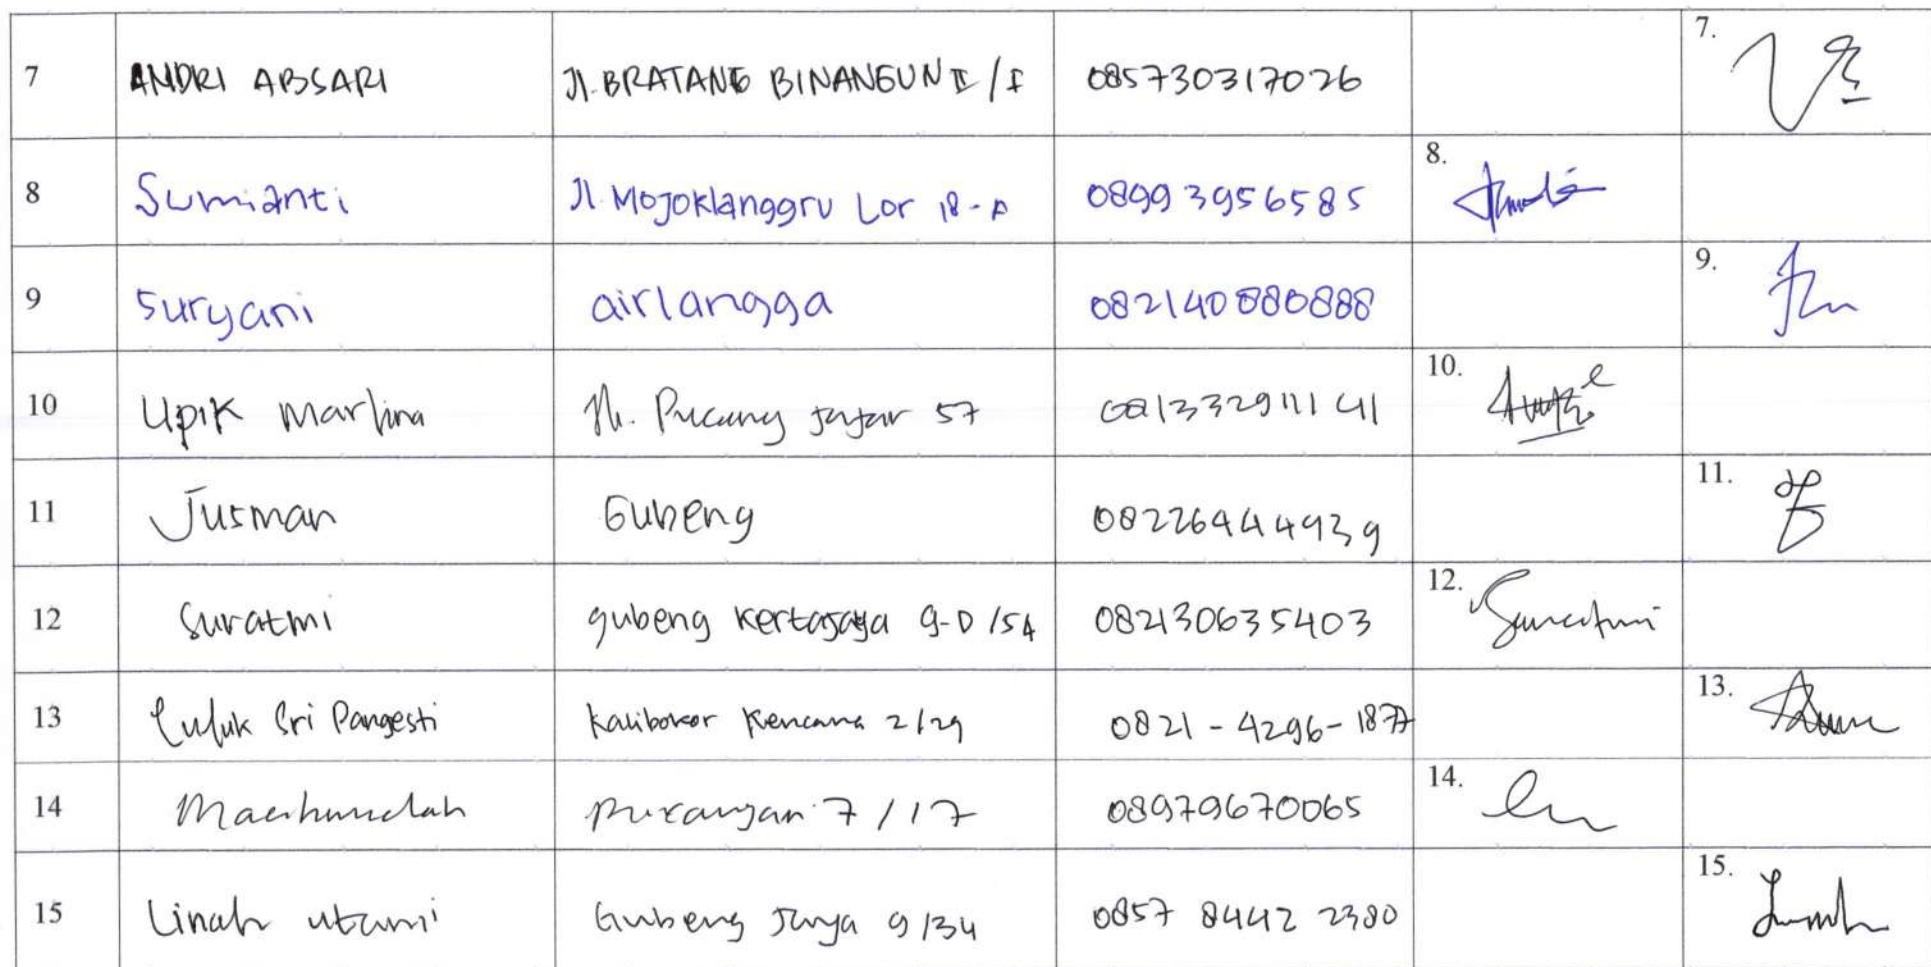 7 ANDRI ABSARI Jl. BRATANG BINANGUN II / I 085730317026 7.
8 Sumianti Jl. Mojoklanggru Lor 18-A 08993956585 8.
9 Suryani airlangga 082140880888 9.
10 Upik Marlina Jln. Pucang jajar 57 081332911141 10.
11 Jusman Gubeng 082264444939 11.
12 Suratmi gubeng Kertajaya 9-D /54 082130635403 12. Suratmi
13 Luluk Sri Pangesti Kalibokor Kencana 2/29 0821-4296-1877 13.
14 7/17 08979670065 14.
15 Linah utami Gubeng Jaya 9/34 0857 8442 2380 15.